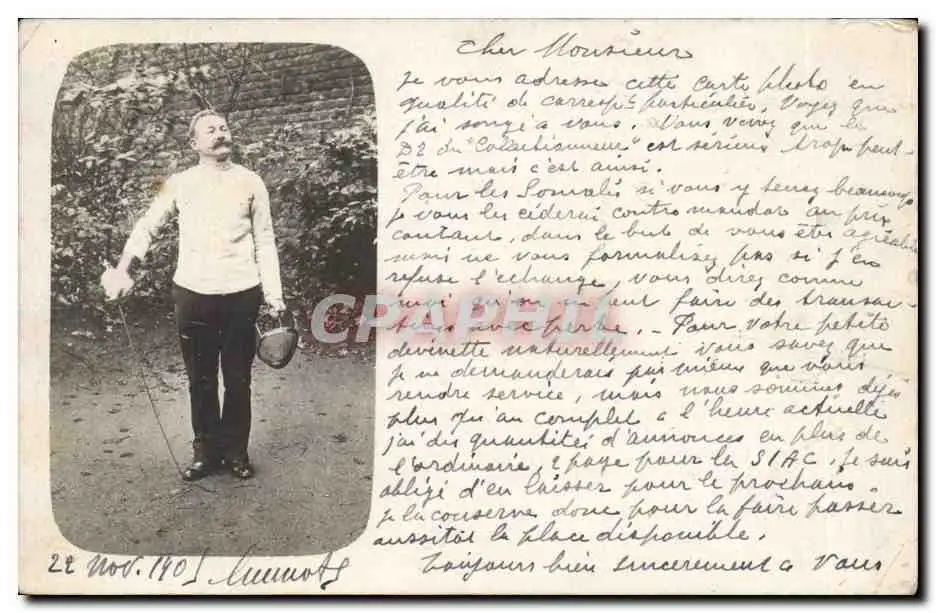 cher Monsieur
Je vous adresse cette carte photo en
qualité de corresp. particulier. Voyez que
j'ai songé à vous. Vous verrez que le
du "Collectionneur" est sérieux trop peut-
être mais c'est ainsi.
Pour les Somalis si vous y tenez beaucoup
je vous les céderai contre mandat au prix
coutant, dans le but de vous être agréable
mais ne vous formalisez pas si j'en
refuse l'échange, vous direz comme
moi qu'on ne peut faire des transac-
tions avec perte. - Pour votre petite
devinette naturellement vous savez que
je ne demanderais pas mieux que vous
rendre service, mais nous sommes déjà
plus qu'au complet à l'heure actuelle
j'ai des quantités d'annonces en plus de
l'ordinaire, 2 page pour la SIAC. Je suis
obligé d'en laisser pour le prochain.
Je la conserve donc pour la faire passer
aussitôt la place disponible.
Toujours bien sincerement a Vous
22 Nov. 1901
CPARAMA